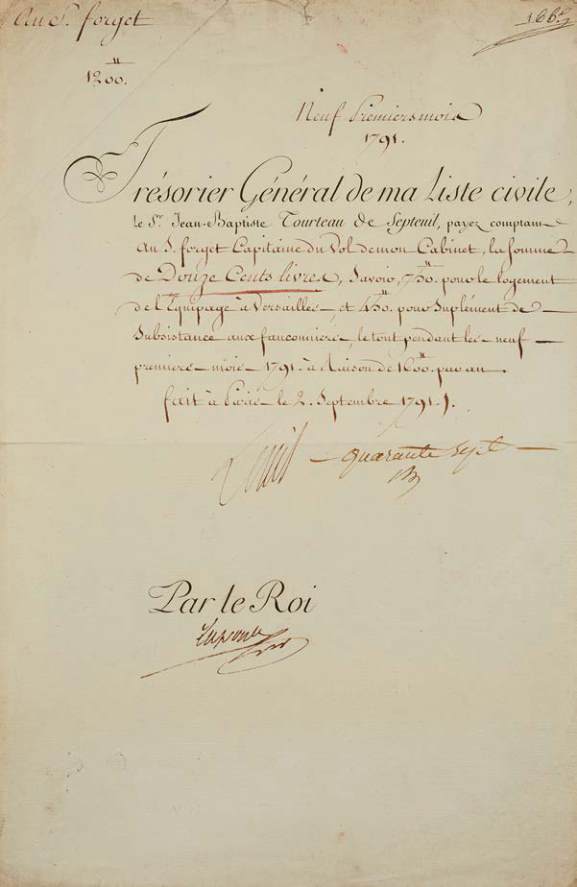 Au S. forget
166.
1200.ᴸᴸ
Neuf Premiers mois
1791.
Trésorier Général de ma Liste civile,
le Sr. Jean-Baptiste Tourteau de Septeuil, payez comptant
Au S. forget Capitaine du Vol de mon Cabinet, la somme
de Douze Cents livres, Savoir, 750.ᴸᴸ pour le logement
de l'Equipage à Versailles, et 450.ᴸᴸ pour Suplément de
Subsistance aux fauconniers, le tout pendant les neuf
premiers mois 1791. à Raison de 1600.ᴸᴸ par an.
fait à Paris le 2. Septembre 1791.
Louis
quarante sept
Par le Roi
Laporte